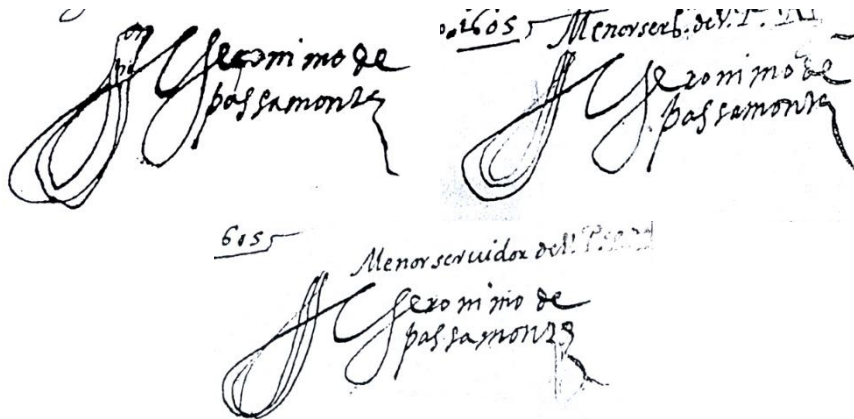 Geronimo de
passamonte
1605
Menor serb. de V. P.
Geronimo de
passamonte
605
Menor seruidor de V. P.
Geronimo de
passamonte